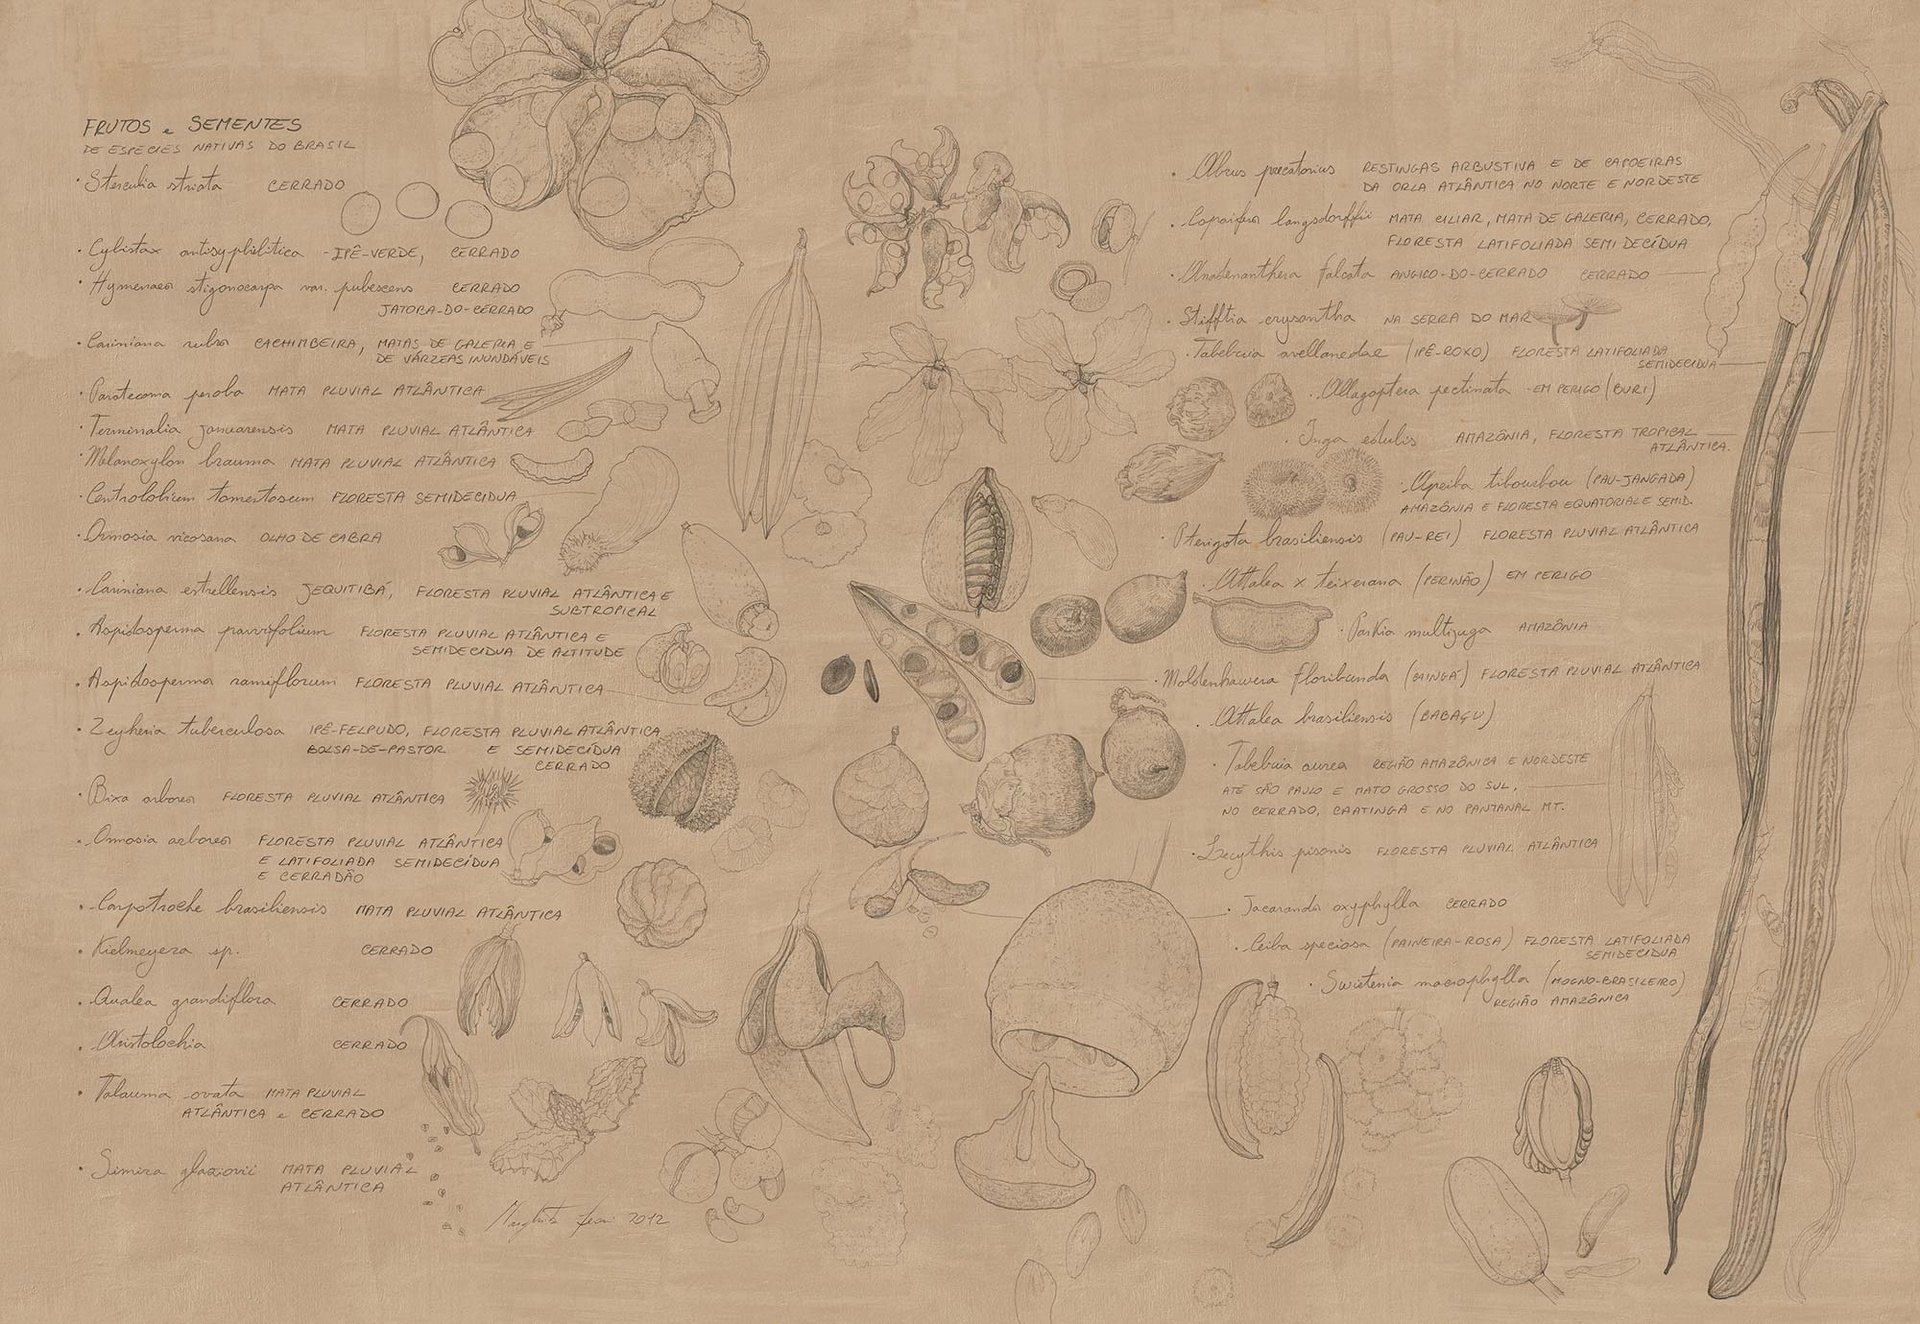 FRUTOS e SEMENTES
DE ESPÉCIES NATIVAS DO BRASIL
· Sterculia striata CERRADO
· Cybistax antisyphilitica - IPÊ-VERDE, CERRADO
· Hymenaea stigonocarpa var. pubescens CERRADO
JATOBA-DO-CERRADO
· Cariniana rubra CACHIMBEIRA, MATAS DE GALERIA E
DE VÁRZEAS INUNDÁVEIS
· Paratecoma peroba MATA PLUVIAL ATLÂNTICA
· Terminalia januarensis MATA PLUVIAL ATLÂNTICA
· Melanoxylon brauma MATA PLUVIAL ATLÂNTICA
· Centrolobium tomentosum FLORESTA SEMIDECIDUA
· Ormosia vicosana OLHO DE CABRA
· Cariniana estrellensis JEQUITIBÁ, FLORESTA PLUVIAL ATLÂNTICA E
SUBTROPICAL
· Aspidosperma parvifolium FLORESTA PLUVIAL ATLÂNTICA E
SEMIDECIDUA DE ALTITUDE
· Aspidosperma ramiflorum FLORESTA PLUVIAL ATLÂNTICA
· Zeyheria tuberculosa IPÊ-FELPUDO, FLORESTA PLUVIAL ATLÂNTICA
BOLSA-DE-PASTOR E SEMIDECÍDUA
CERRADO
· Bixa arborea FLORESTA PLUVIAL ATLÂNTICA
· Ormosia arborea FLORESTA PLUVIAL ATLÂNTICA
E LATIFOLIADA SEMIDECÍDUA
E CERRADÃO
· Carpotroche brasiliensis MATA PLUVIAL ATLÂNTICA
· Kielmeyera sp. CERRADO
· Qualea grandiflora CERRADO
· Aristolochia CERRADO
· Talauma ovata MATA PLUVIAL
ATLÂNTICA e CERRADO
· Simira glaziovii MATA PLUVIAL
ATLÂNTICA
2012
· Abrus precatorius RESTINGAS ARBUSTIVA E DE CAPOEIRAS
DA ORLA ATLÂNTICA NO NORTE E NORDESTE
· Copaifera langsdorffii MATA CILIAR, MATA DE GALERIA, CERRADO,
FLORESTA LATIFOLIADA SEMIDECÍDUA
· Anadenanthera falcata ANGICO-DO-CERRADO CERRADO
· Stifftia crysantha NA SERRA DO MAR
· Tabebuia avellanedae (IPÊ-ROXO) FLORESTA LATIFOLIADA
SEMIDECIDUA
· Allagoptera pectinata - EM PERIGO (BURI)
· Inga edulis AMAZÔNIA, FLORESTA TROPICAL
ATLÂNTICA.
· Apeiba tibourbou (PAU-JANGADA)
AMAZÔNIA E FLORESTA EQUATORIAL E SEMID.
· Pterigota brasiliensis (PAU-REI) FLORESTA PLUVIAL ATLÂNTICA
· Attalea x teixerana (PERINÃO) EM PERIGO
· Parkia multijuga AMAZÔNIA
· Moldenhawera floribunda FLORESTA PLUVIAL ATLÂNTICA
· Attalea brasiliensis (BABAÇU)
· Tabebuia aurea REGIÃO AMAZÔNICA E NORDESTE
ATÉ SÃO PAULO E MATO GROSSO DO SUL,
NO CERRADO, CAATINGA E NO PANTANAL MT.
· Lecythis pisonis FLORESTA PLUVIAL ATLÂNTICA
· Jacaranda oxyphylla CERRADO
· Ceiba speciosa (PAINEIRA-ROSA) FLORESTA LATIFOLIADA
SEMIDECIDUA
· Swietenia macrophylla (MOGNO-BRASILEIRO)
REGIÃO AMAZÔNICA